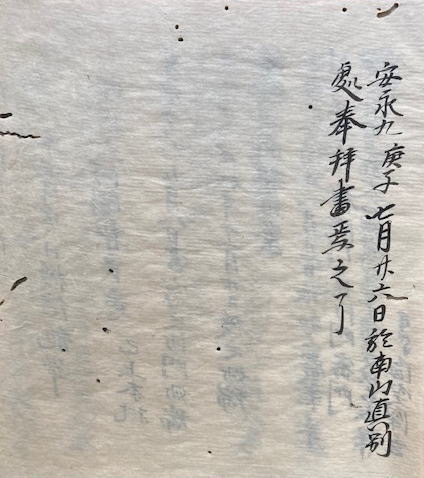 安永九庚子七月廿六日於南山真別
處奉拝書焉之了